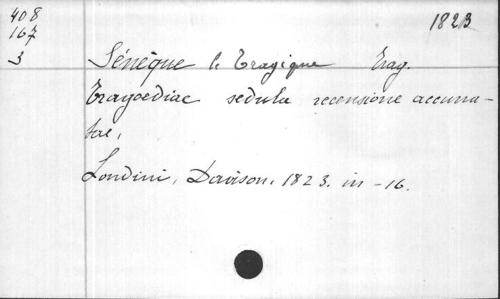 408
167
3
1823
Sénèque le Tragique Trag.
Tragoediae sedula recensione accura-
tae,
Londini, Davison, 1823. in-16.